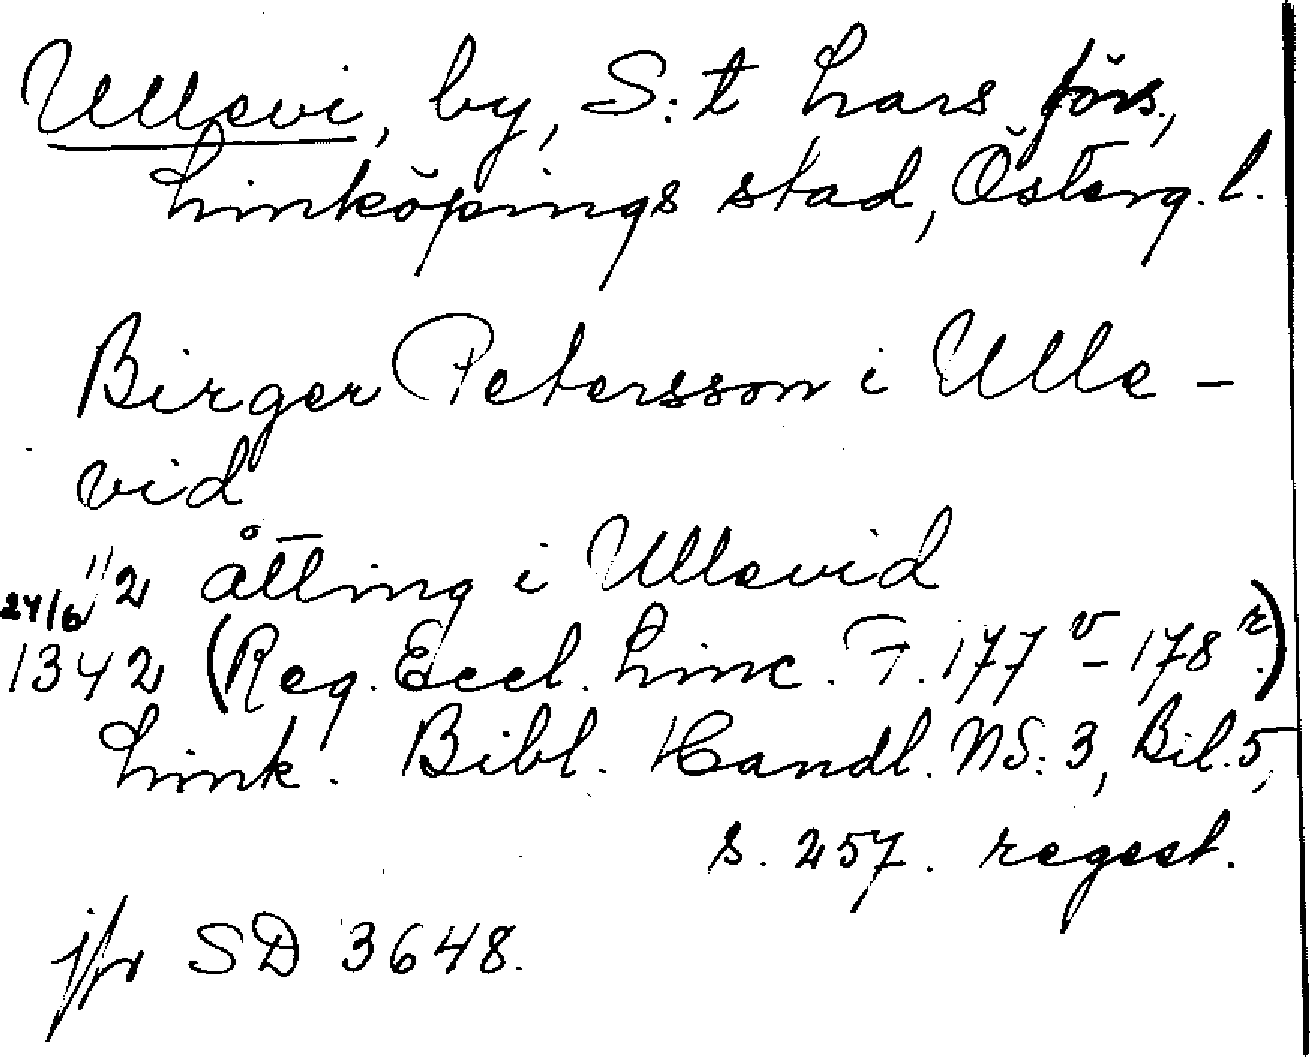 Ullevi, by, S:t Lars förs.,
Linköpings stad, Österg. l.
Birger Petersson i Ulle-
vid
1/2 åtting i Ullevid
24/6
1342 (Reg. Eccl. Linc. F. 177 v - 178 r.)
Link. Bibl. Handl. NS: 3, Bil. 5,
s. 257. regest.
jfr SD 3648.